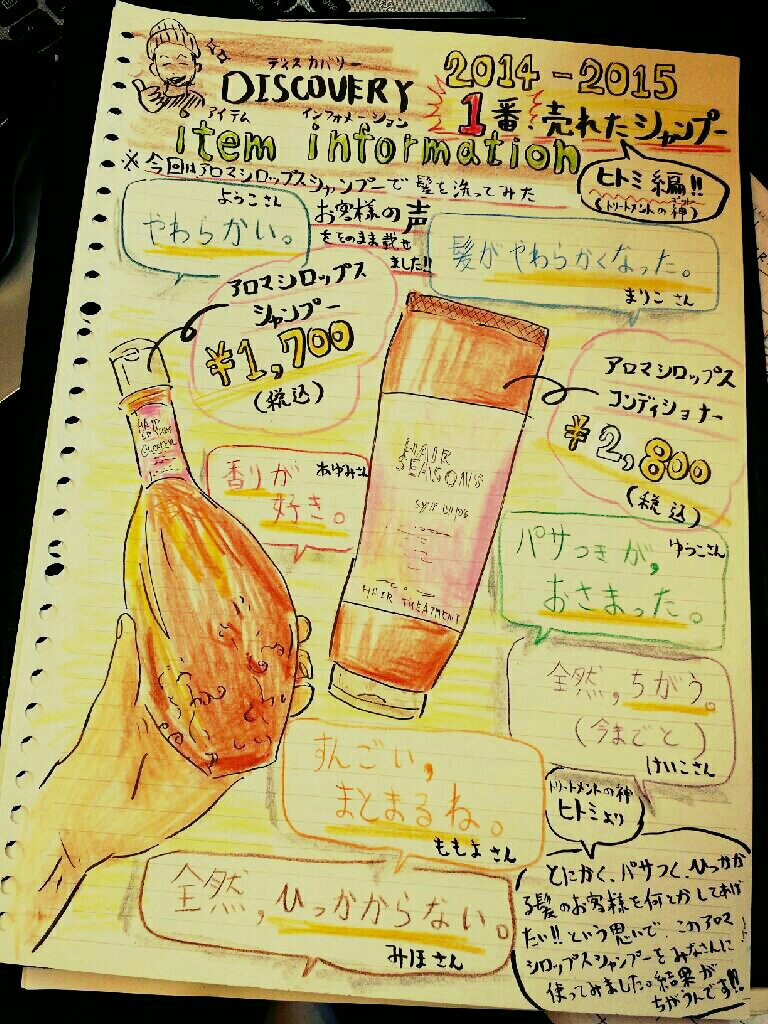 ディスカバリー
DISCOVERY
2014-2015
1番!売れたシャンプー
アイテム インフォメーション
item information
ヒトミ編!!
(トリートメントの神)
※今回はアロマシロップスシャンプーで髪を洗ってみた
お客様の声
をそのまま載せ
ました!!
ようこさん
やわらかい。
髪がやわらかくなった。
まりこさん
アロマシロップス
シャンプー
¥1,700
(税込)
アロマシロップス
コンディショナー
¥2,800
(税込)
HAIR
SEASONS
HAIR TREATMENT
香りが
あゆみさん
好き。
パサつきが,
ゆうこさん
おさまった。
全然,ちがう。
(今までと)
けいこさん
すんごい,
まとまるね。
ももよさん
トリートメントの神
ヒトミより
全然,ひっかからない。
みほさん
とにかく、パサつく、ひっかか
る髪のお客様を何とかしてあげ
たい!!という思いで、このアロマ
シロップスシャンプーをみなさんに
使ってみました。結果が
ちがうんです!!